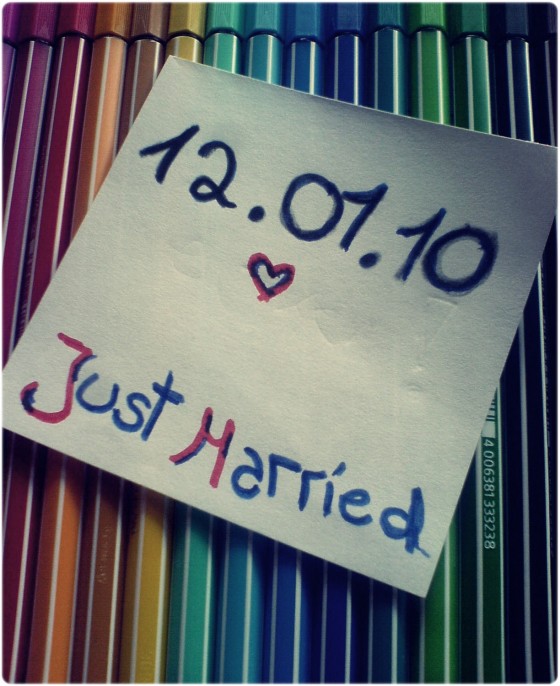 12.01.10
Just Married
4 006381 333238